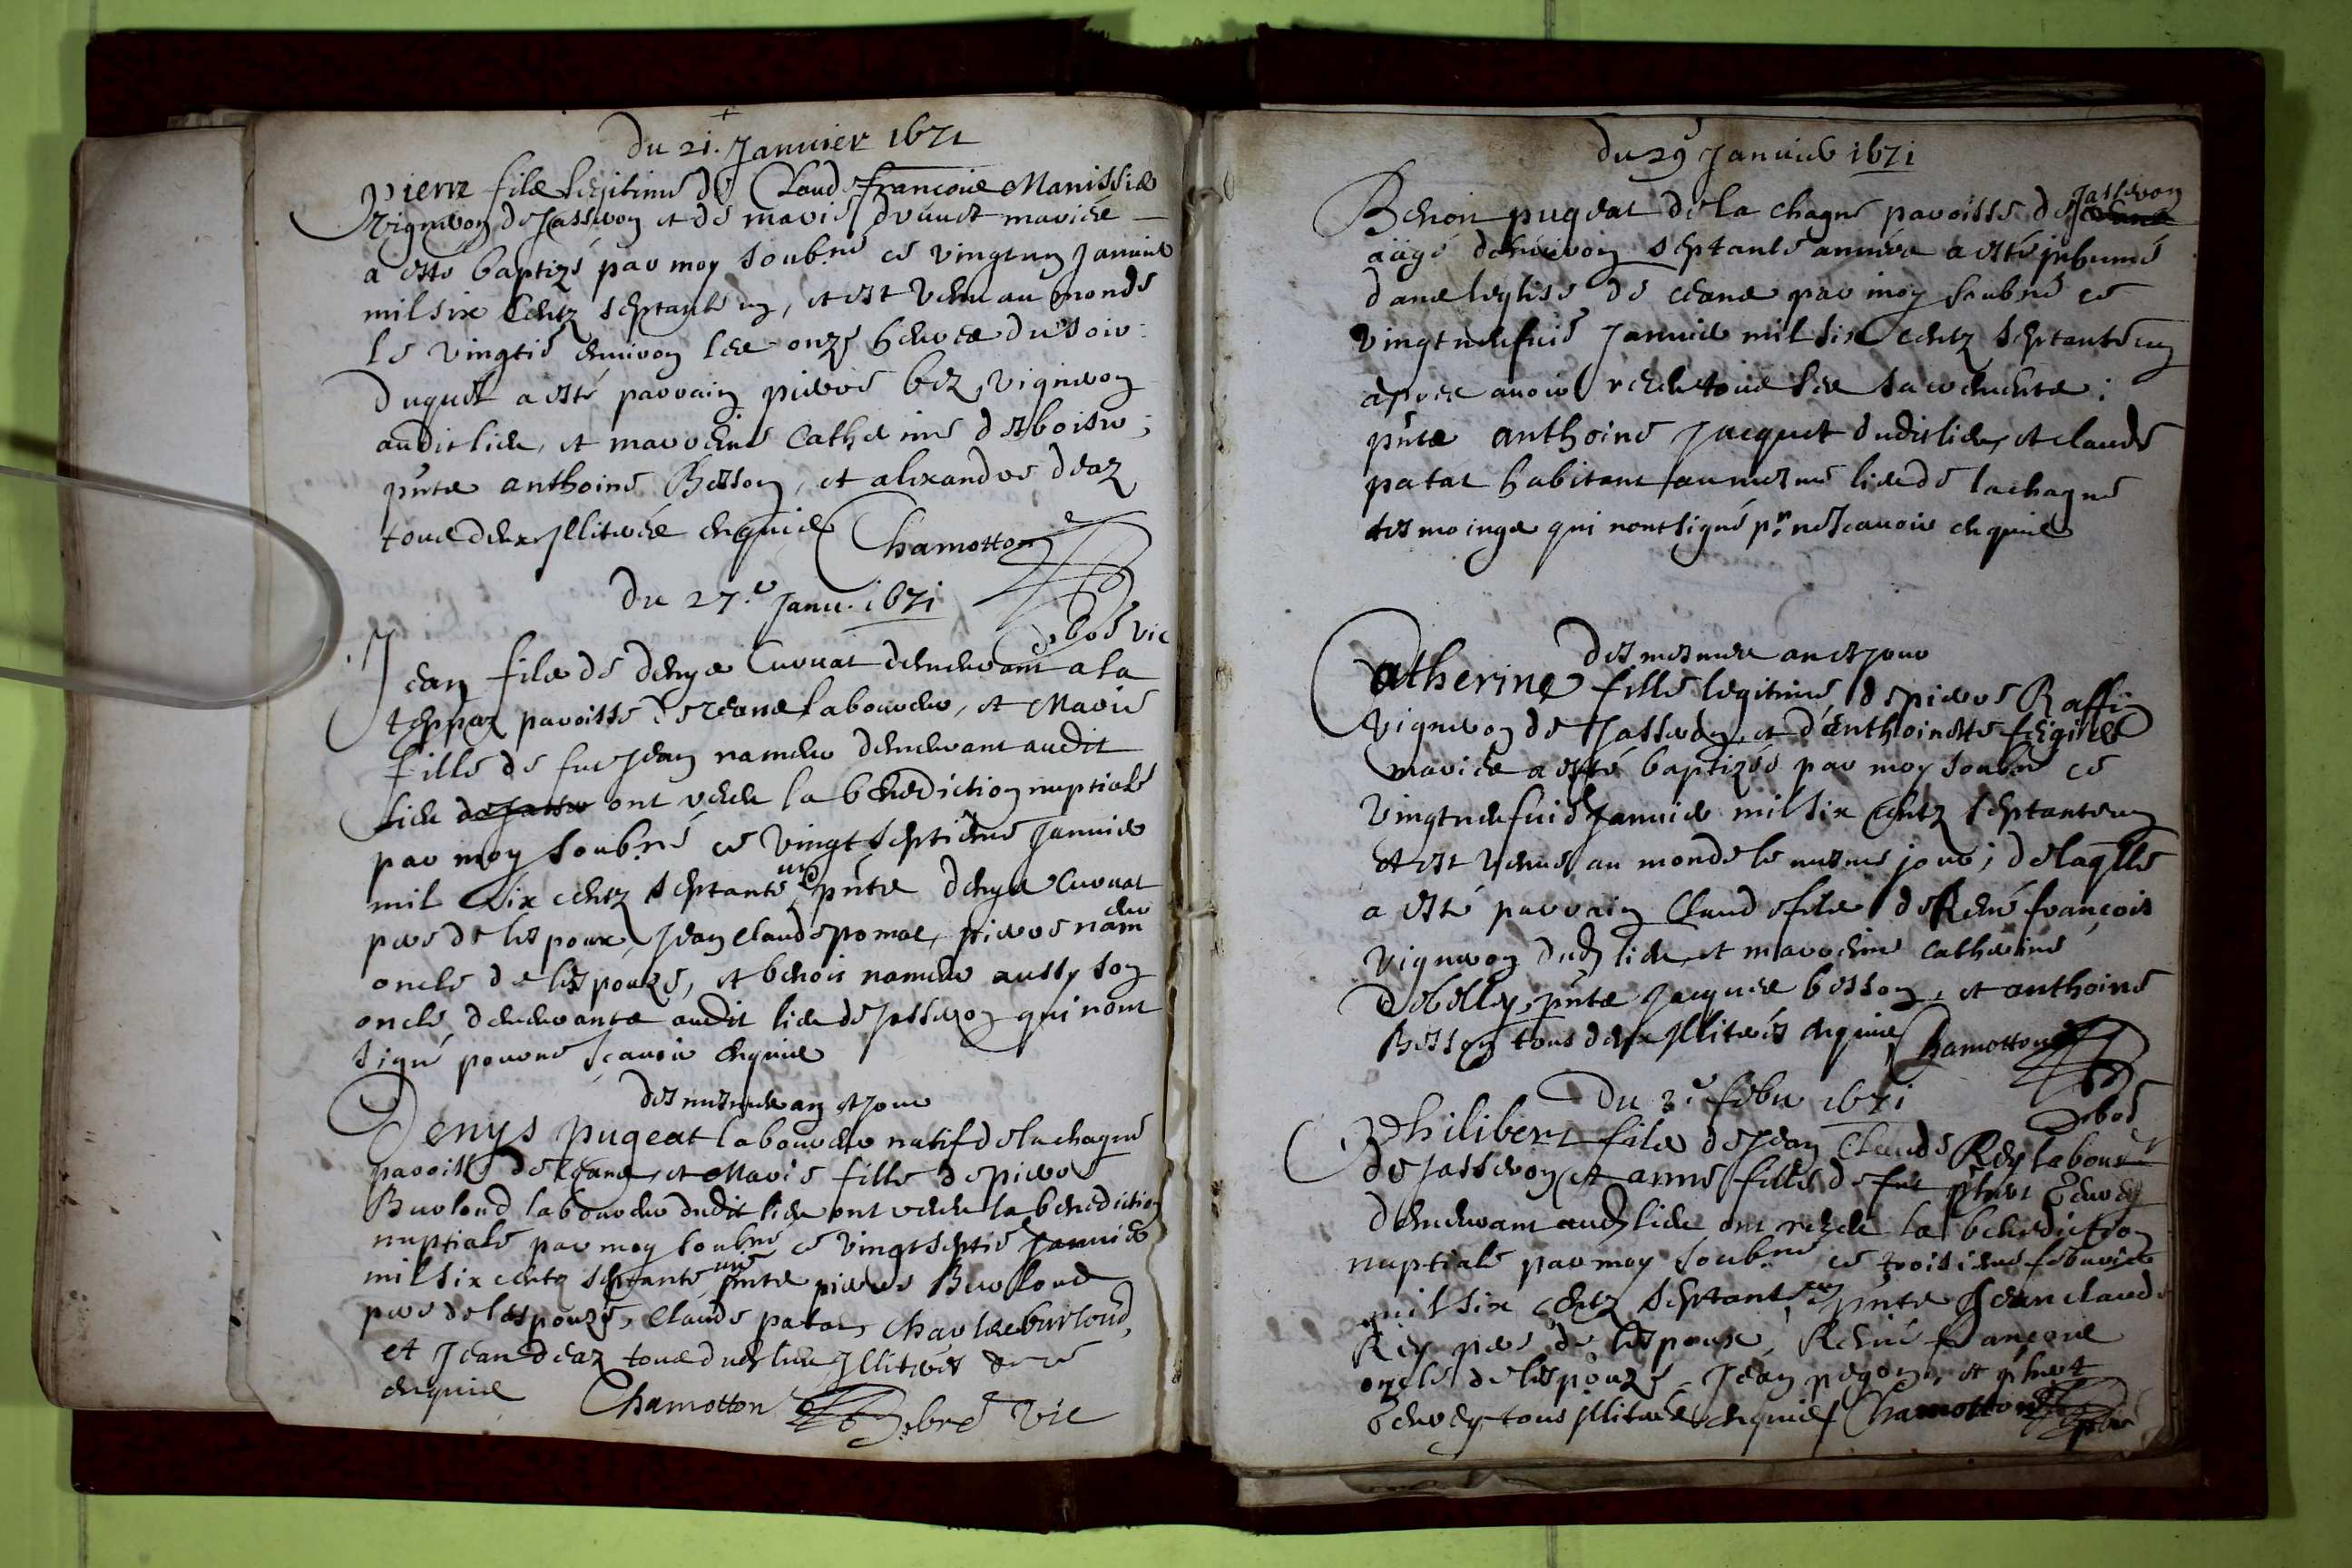 Du 21. Janvier 1671
Pierre filz legitime de Claude françois Manissier
vigneron de Jasseron et de marie druiset mariés
a esté baptizé par moy soub.né ce vingtun Janvier
mil six Centz septante un, et est venu au monde
le vingtie environ les onze heures du soir.
Duquel a esté parrain pierre bez vigneron
audit lieu, et marrene Catherine desboisu;
p̄ntz anthoine Besson, et alexandre deaz
tous deux Jllitérés enquis Chamotton
Du 27.e Janv. 1671
pbre vic
Jean filz de denys Curvat demeurant a la
teppaz paroisse de ceans laboureur, et Marie
fille de fut Jean rameau demeurant audit
lieu de Jasse ont receu la benediction nuptiale
par moy soub.né ce vingt septieme Janvier
mil six centz septante un p̄ntz denys Curvat
pere de lespoux, Jean claude pomat, pierre ram eau
oncle de lespouze, et benoit rameau aussy son
oncle demeurantz audit lieu de Jasseron qui nont
signé pour ne scavoir enquis
des mesmes an et jour
Denys pugeat laboureur natif de la chagne
paroisse de ceans, et Marie fille de pierre
Burloud laboureur dudit lieu ont receu la benediction
nuptiale par moy soub.né ce vingt septie Janvier
mil six centz septante un p̄ntz pierre Burloud
pere de lespouze, Claude patat, charles burloud,
et Jean deaz tous dud lieu Jllitérés
enquis Chamotton pbre vic
du 29 Janvier 1671
Benoit pugeat de la chagne paroisse de Jasseron
aagé denviron septante années a esté inhumé
dans leglise de ceans par moy soubné ce
vingt neufvie Janvier mil six centz septante un
apres avoir receu tous les sacrementz:
p̄ntz anthoine Jacquet dudit lieu, et claude
patat habitant au mesme lieu de la chagne
tesmoingz qui nont signé p.r ne scavoir enquis
des mesmes an et jour
Catherine fille legitime de pierre Raffin
vigneron de Jasseron, et d'anthoinette
mariés a esté baptizée par moy soubné ce
vingt neufvie Janvier mil six centz septante un
et est venue au monde le mesme jour; de laq̄lle
a esté parrain Claude filz de René françois
vigneron dud lieu, et marrene Catherine
debelley, p̄ntz Jacques besson, et anthoine
Besson tous deux Jllitérés enquis Chamotton
pbre
Du 3.e febv 1671
Philibert filz de Jean Claude Rey labour
de Jasseron et anne fille de fut phibert
demeurant aud lieu ont receu la benediction
nuptiale par moy soub.né ce troisieme febvrier
mil six centz septante un p̄ntz Jean claude
Rey pere de lespoux, René françois
oncle de lespouze, Jean pegon, et phibert
tous Jllitérés enquis Chamotton
pbre